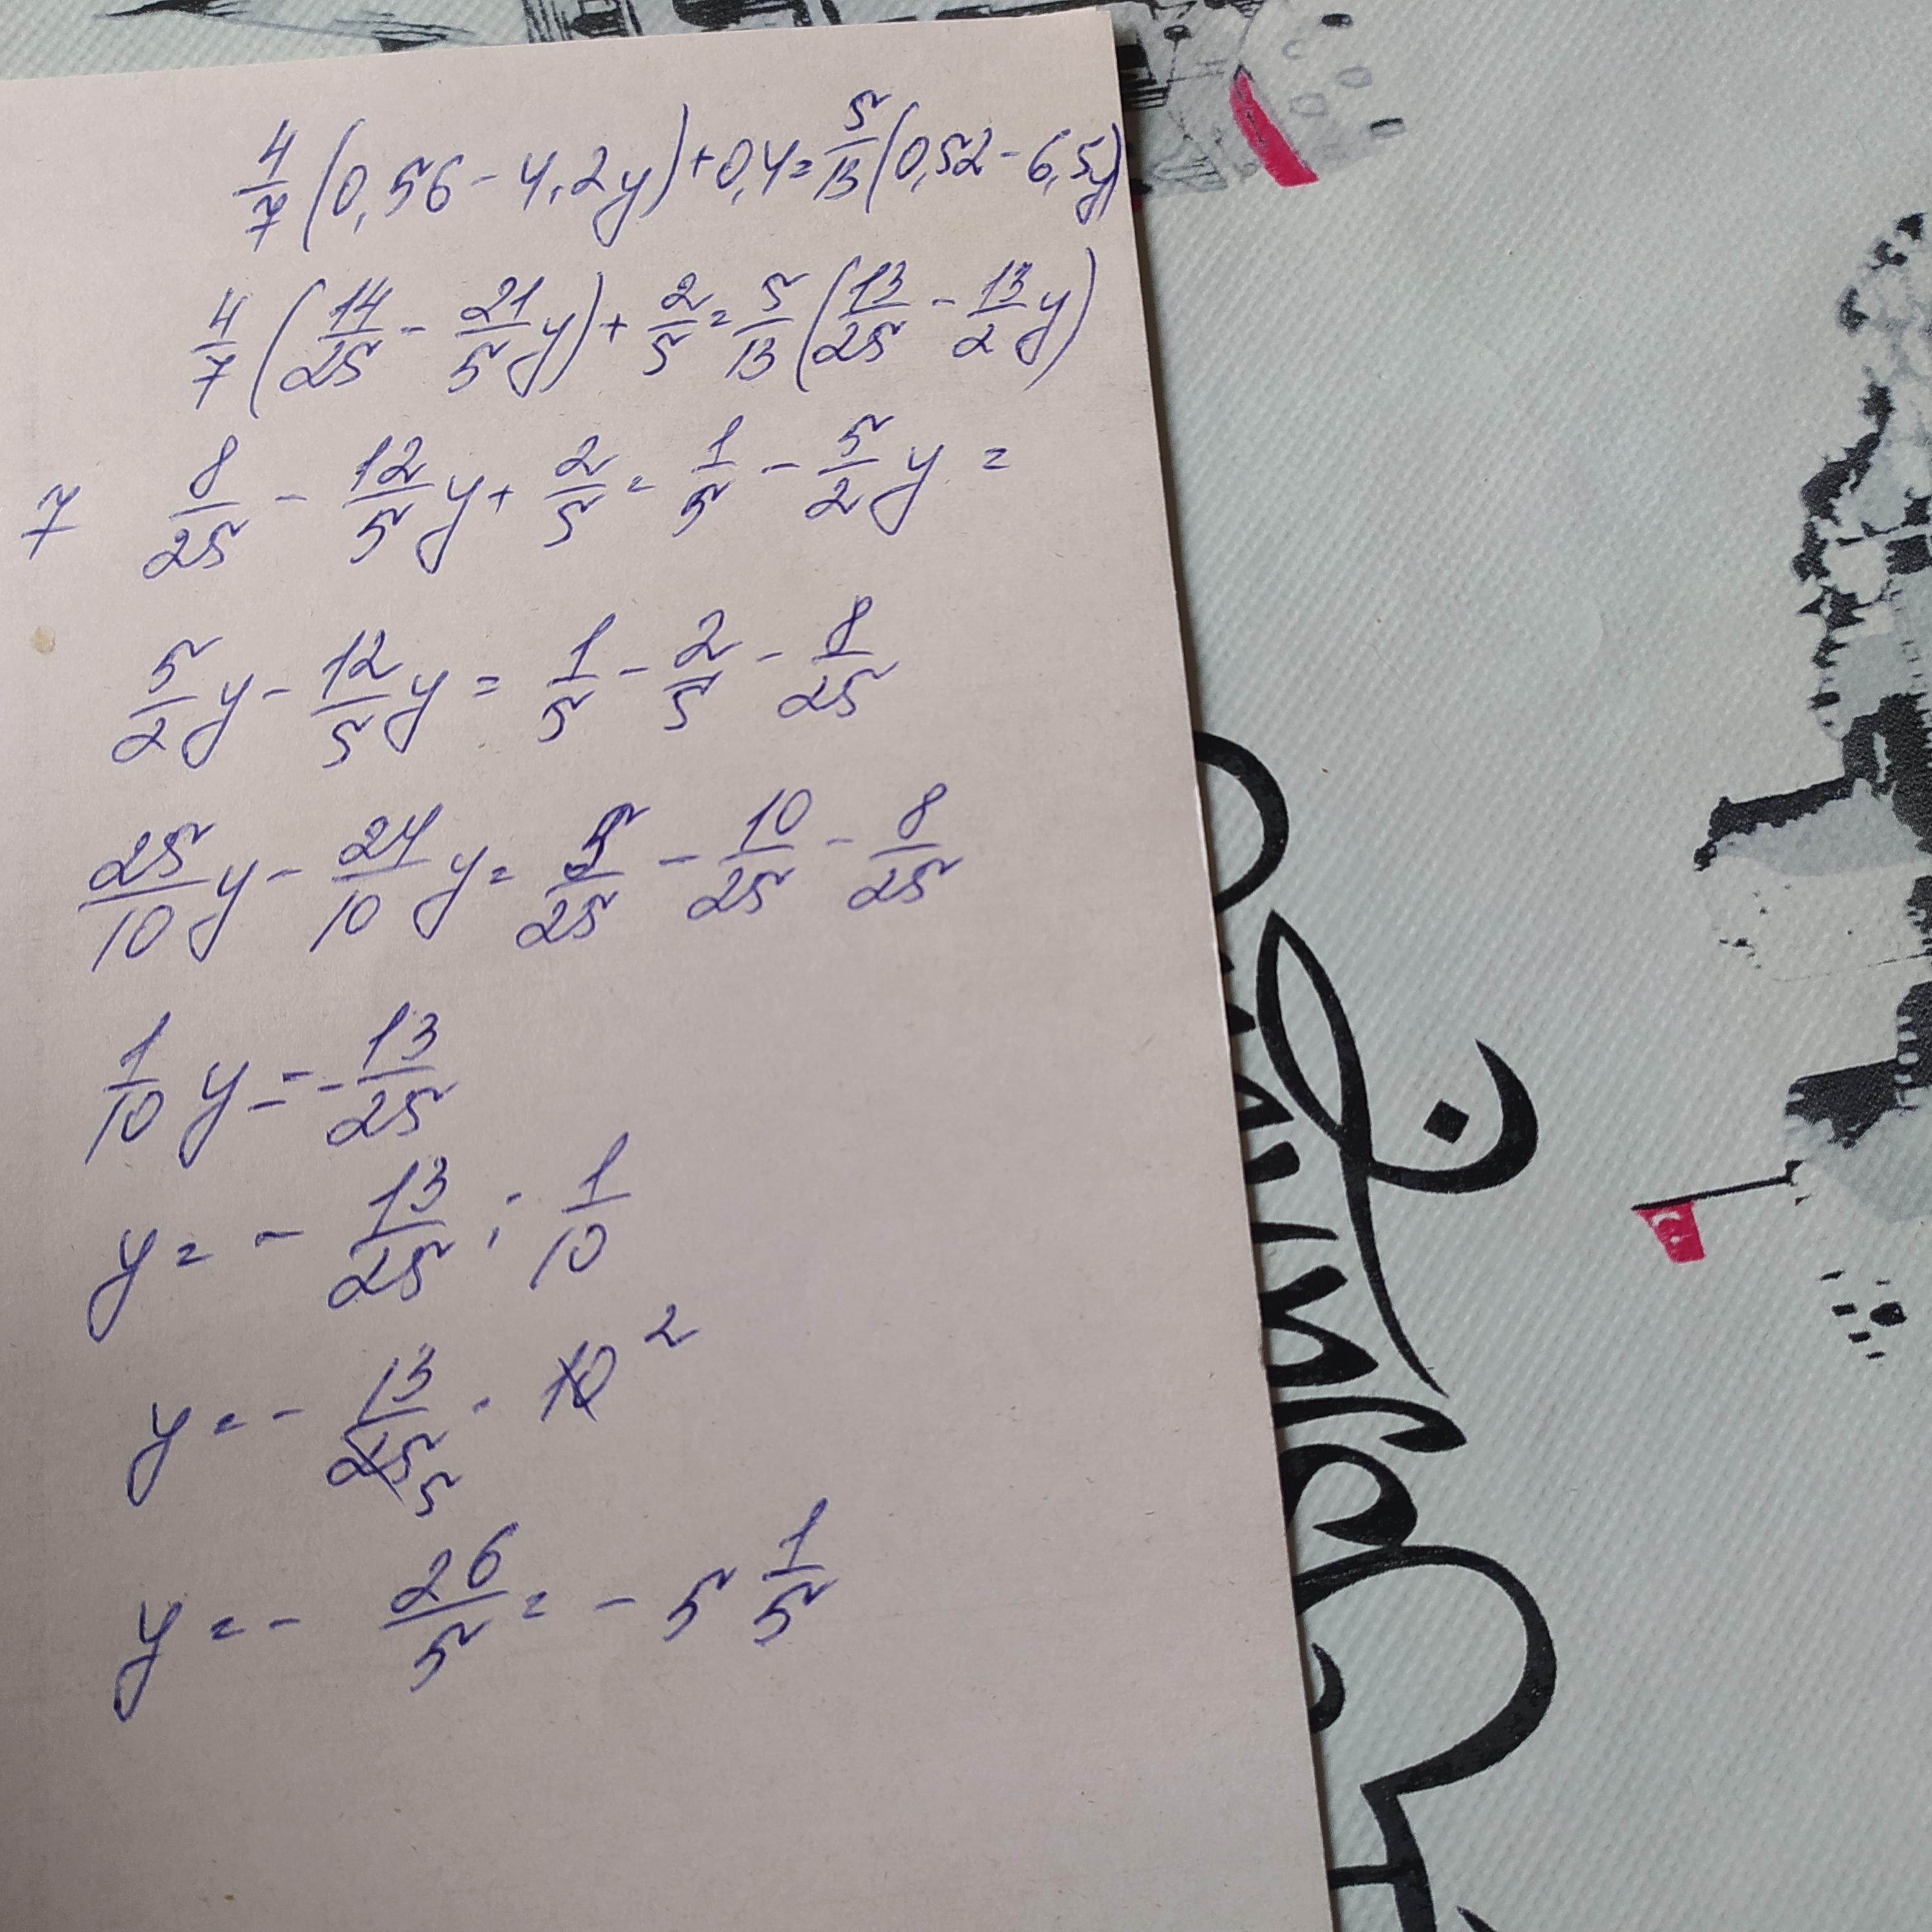 4/7 (0,56 - 4,2y) + 0,4 = 5/13 (0,52 - 6,5y)
4/7 (14/25 - 21/5 y) + 2/5 = 5/13 (13/25 - 13/2 y)
7 8/25 - 12/5 y + 2/5 = 1/5 - 5/2 y =
5/2 y - 12/5 y = 1/5 - 2/5 - 8/25
25/10 y - 24/10 y = 5/25 - 10/25 - 8/25
1/10 y = - 13/25
y = - 13/25 : 1/10
y = - 13/25 5 · 10 2
y = - 26/5 = - 5 1/5